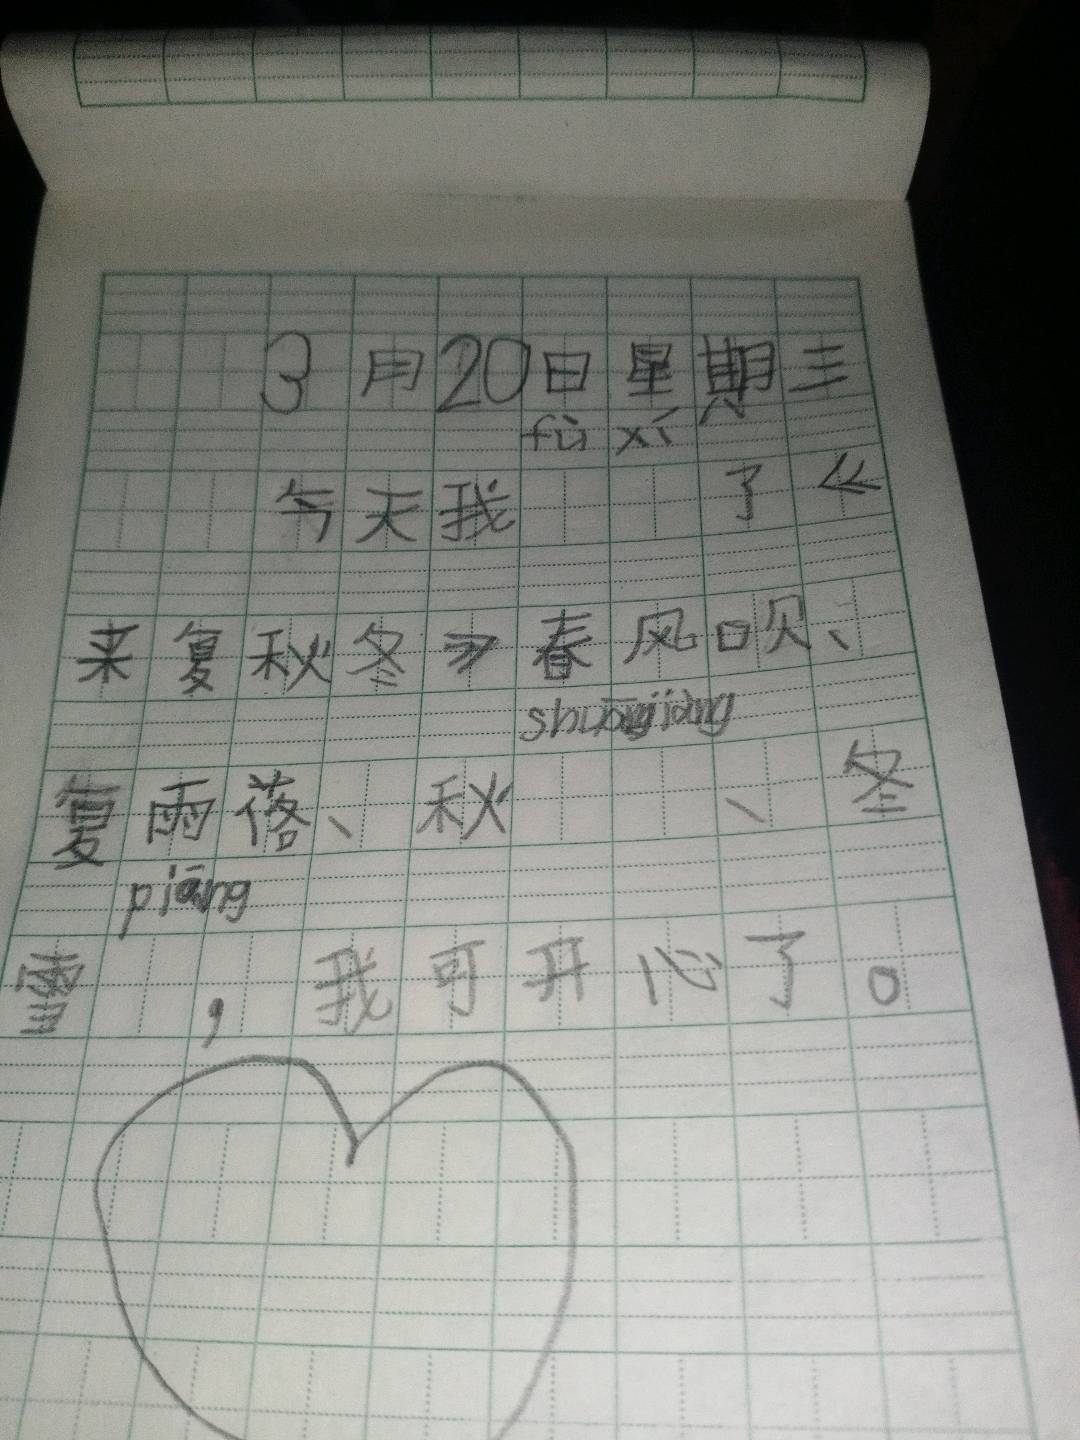 3月20日星期三
fù xí
今天我 了《
来夏秋冬》春风吹、
shuāngjiàng
夏雨落、秋 、冬
piāng
雪 ,我可开心了。